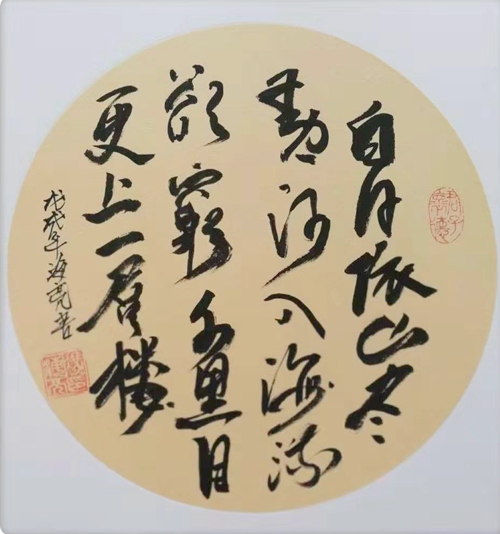 白日依山尽
黄河入海流
欲窮千里目
更上一層樓
戊戌年海亮书